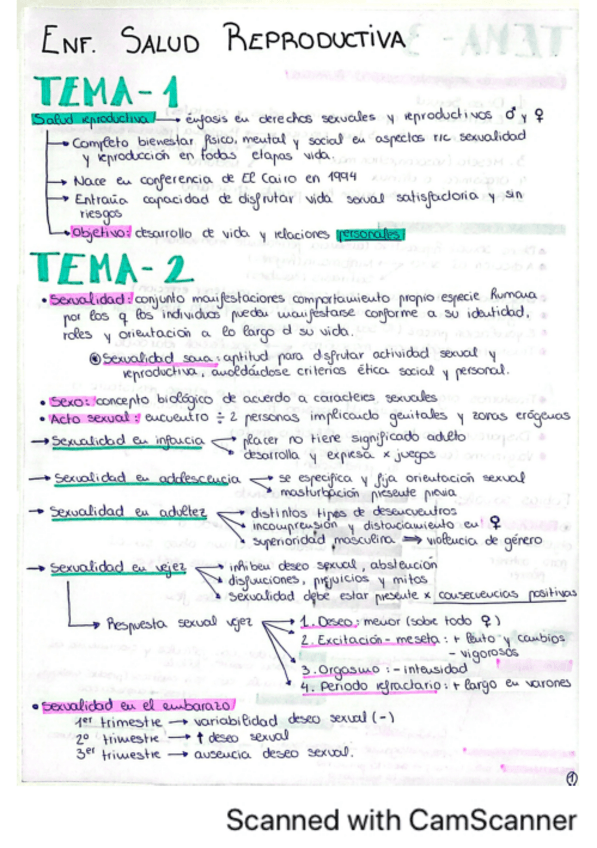 ENF. SALUD REPRODUCTIVA
TEMA-1
Salud reproductiva → énfasis en derechos sexuales y reproductivos ♂ y ♀
→ Completo bienestar físico, mental y social en aspectos r/c sexualidad
y reproducción en todas etapas vida.
→ Nace en conferencia de El Cairo en 1994
→ Entraña capacidad de disfrutar vida sexual satisfactoria y sin
riesgos
→ Objetivo: desarrollo de vida y relaciones personales
TEMA-2
• Sexualidad: conjunto manifestaciones comportamiento propio especie humana
por los q los individuos pueden manifestarse conforme a su identidad,
roles y orientación a lo largo d su vida.
Sexualidad sana: aptitud para disfrutar actividad sexual y
reproductiva, amoldándose criterios ética social y personal.
• Sexo: concepto biológico de acuerdo a caracteres sexuales
• Acto sexual: encuentro ÷ 2 personas, implicando genitales y zonas erógenas
→ Sexualidad en infancia → placer no tiene significado adulto
→ desarrolla y expresa x juegos
→ Sexualidad en adolescencia → se especifica y fija orientación sexual
→ masturbación presente previa
→ Sexualidad en adultez → distintos tipos de desencuentros
→ incomprensión y distanciamiento en ♀
→ superioridad masculina ⇒ violencia de género
→ Sexualidad en vejez → inhiben deseo sexual, abstención
→ disfunciones, prejuicios y mitos
→ sexualidad debe estar presente x consecuencias positivas
→ Respuesta sexual vejez → 1. Deseo: menor (sobre todo ♀)
→ 2. Excitación - meseta: + lento y cambios
- vigorosos
→ 3. Orgasmo: - intensidad
→ 4. Periodo refractario: + largo en varones
• Sexualidad en el embarazo
1er trimestre → variabilidad deseo sexual (-)
2º trimestre → ↑ deseo sexual
3er trimestre → ausencia deseo sexual.
1
Scanned with CamScanner